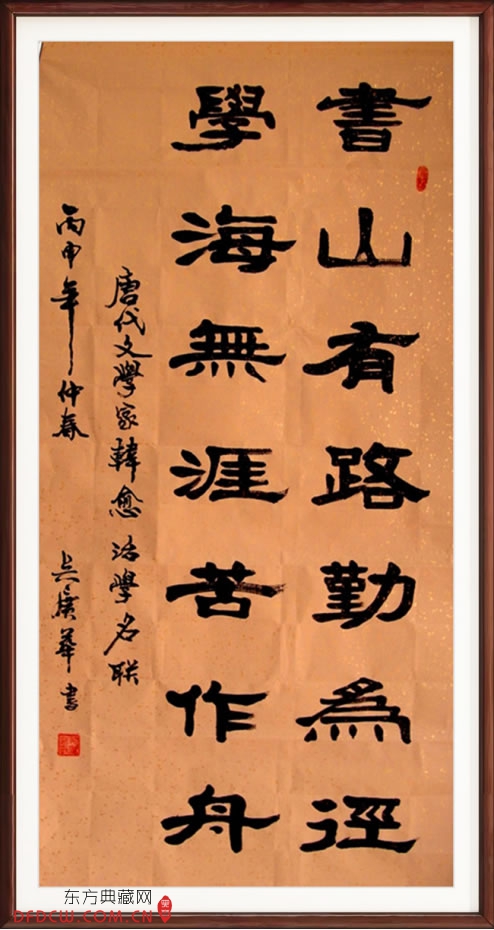 書山有路勤為徑
學海無涯苦作舟
唐代文學家韓愈治學名联
丙申年仲春 吴廣華書
东方典藏网
DFDCW.COM.CN